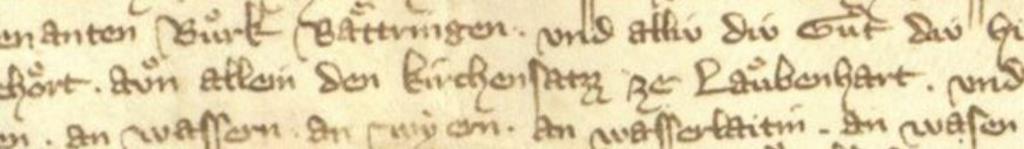 enanten Bůrk Råttringen. vnd alliv div Gůt div hi
ehoͤrt. aͮn allein den kirchensatz ze Laͮbenhart. vnd
en. an wassern. an wyern. an wasserlaitin. an wasen